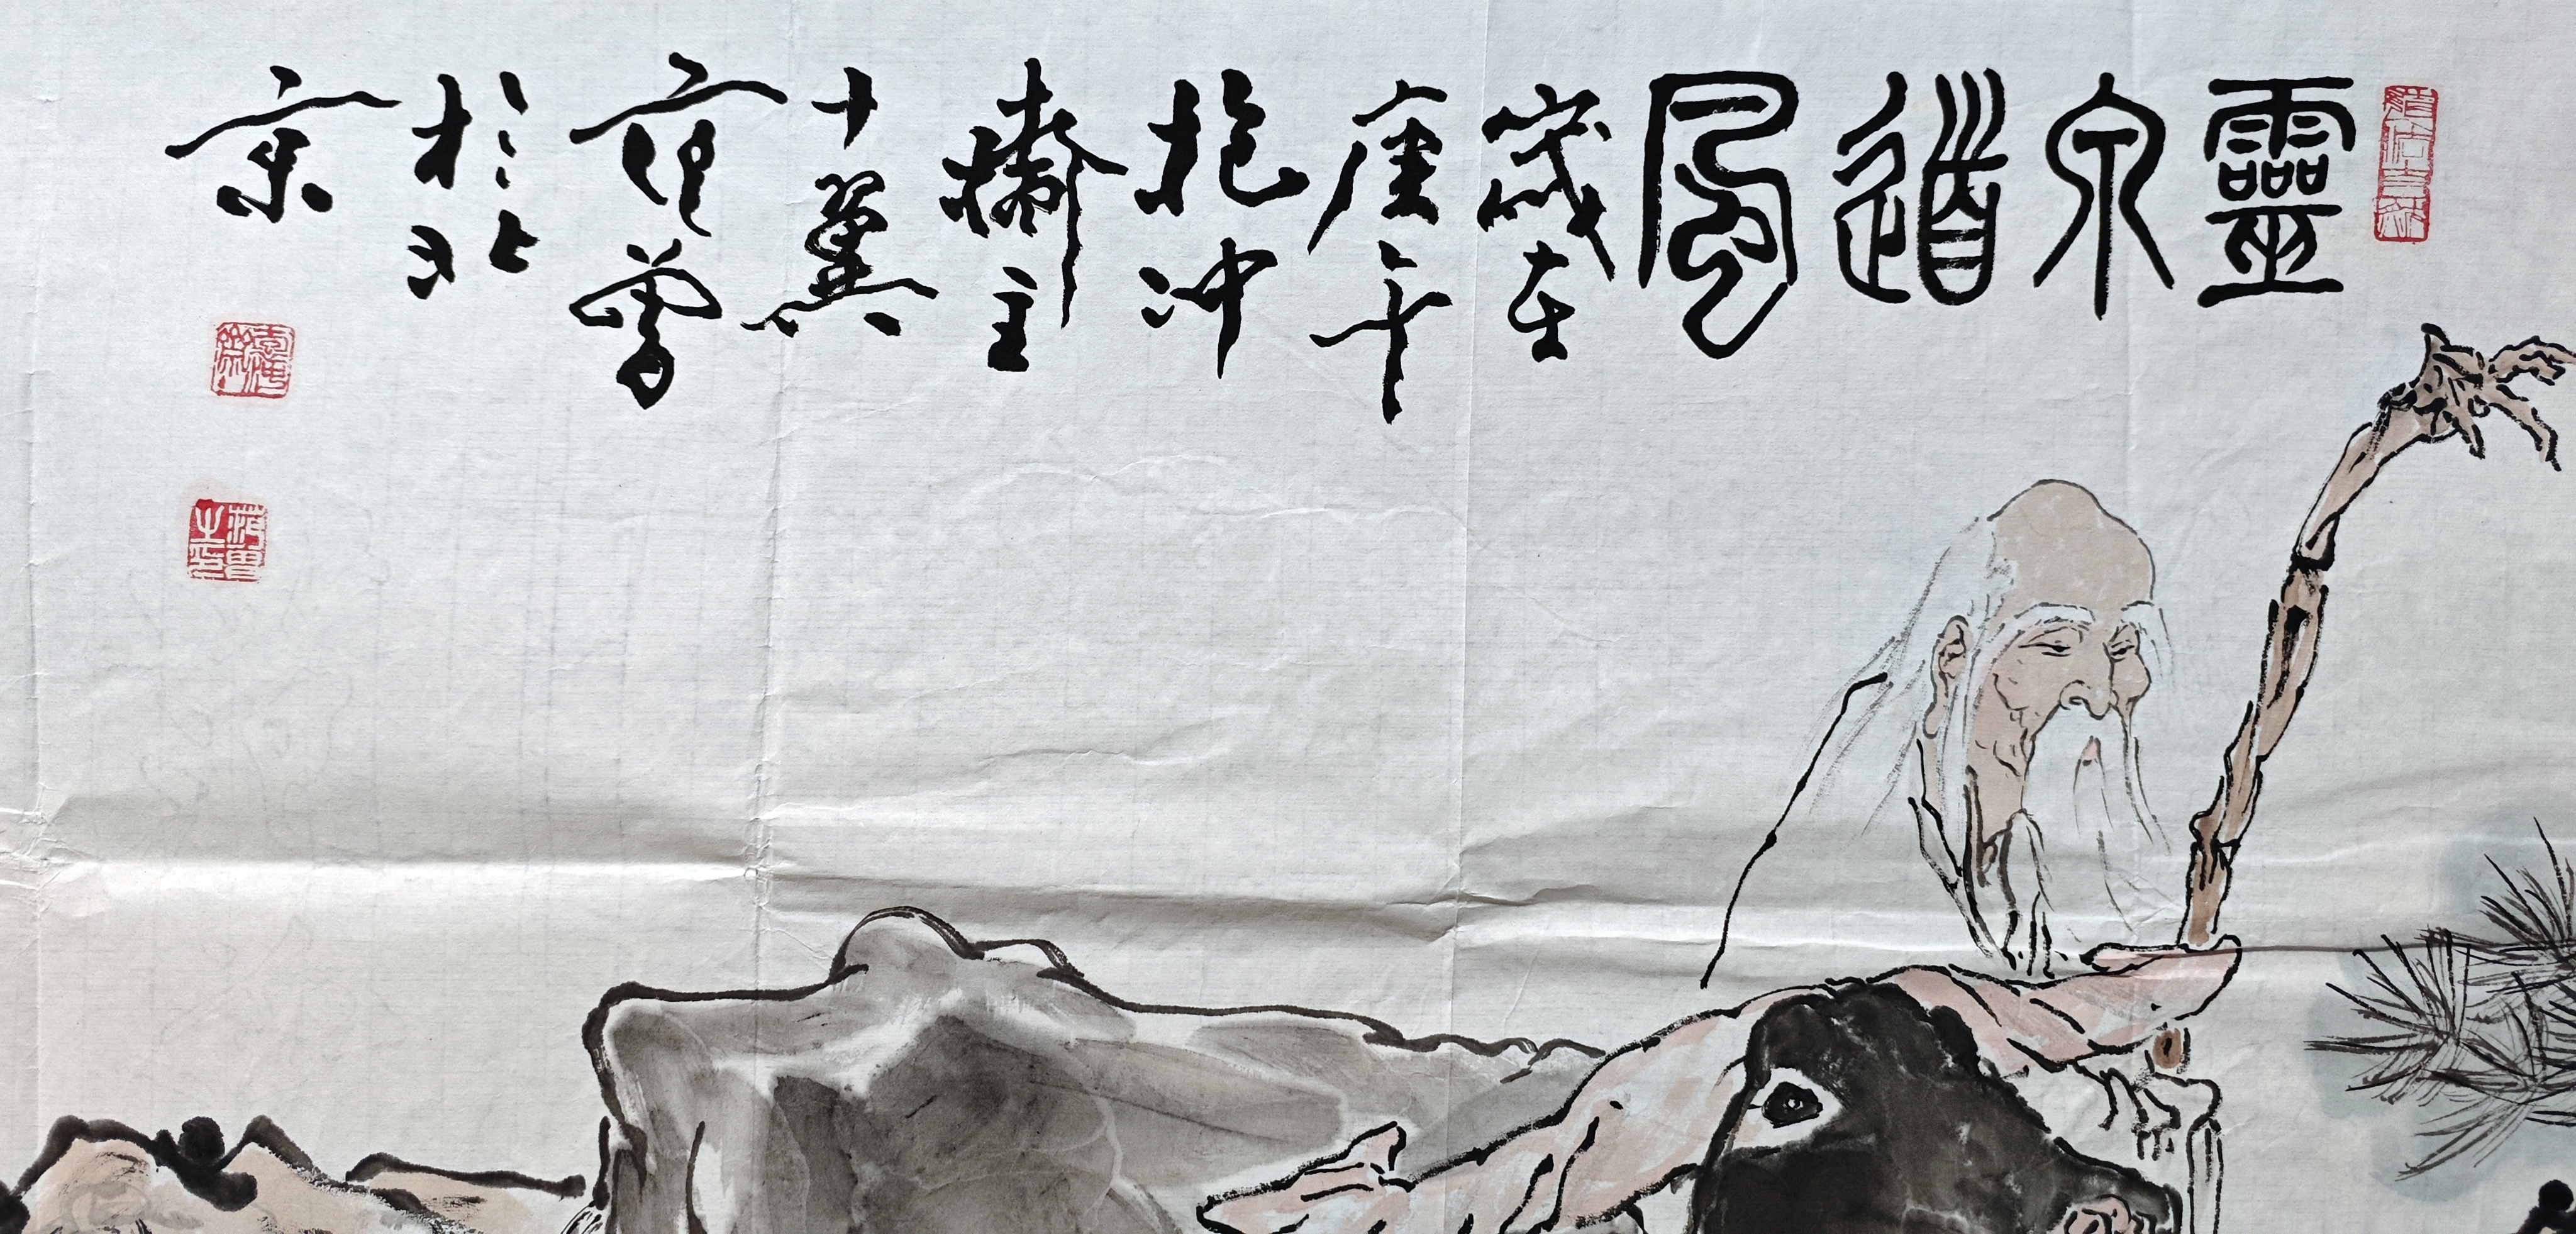 靈泉道風
歲在
庚午
抱冲
齋主
十翼
范曾
於北
京